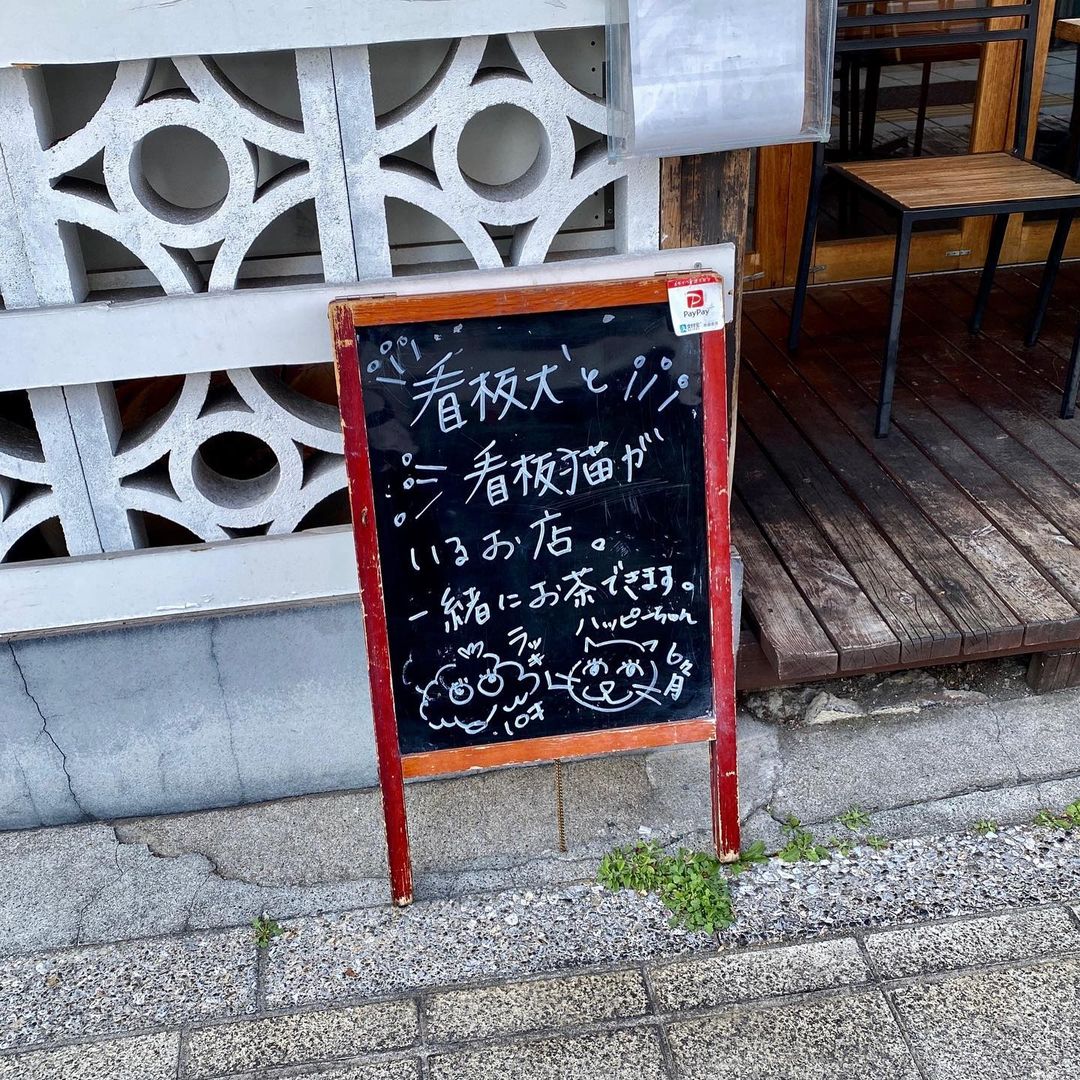 看板犬と
看板猫が
いるお店。
一緒にお茶できます。
ラッキー
10才
ハッピーちゃん
6ヶ月
PayPay